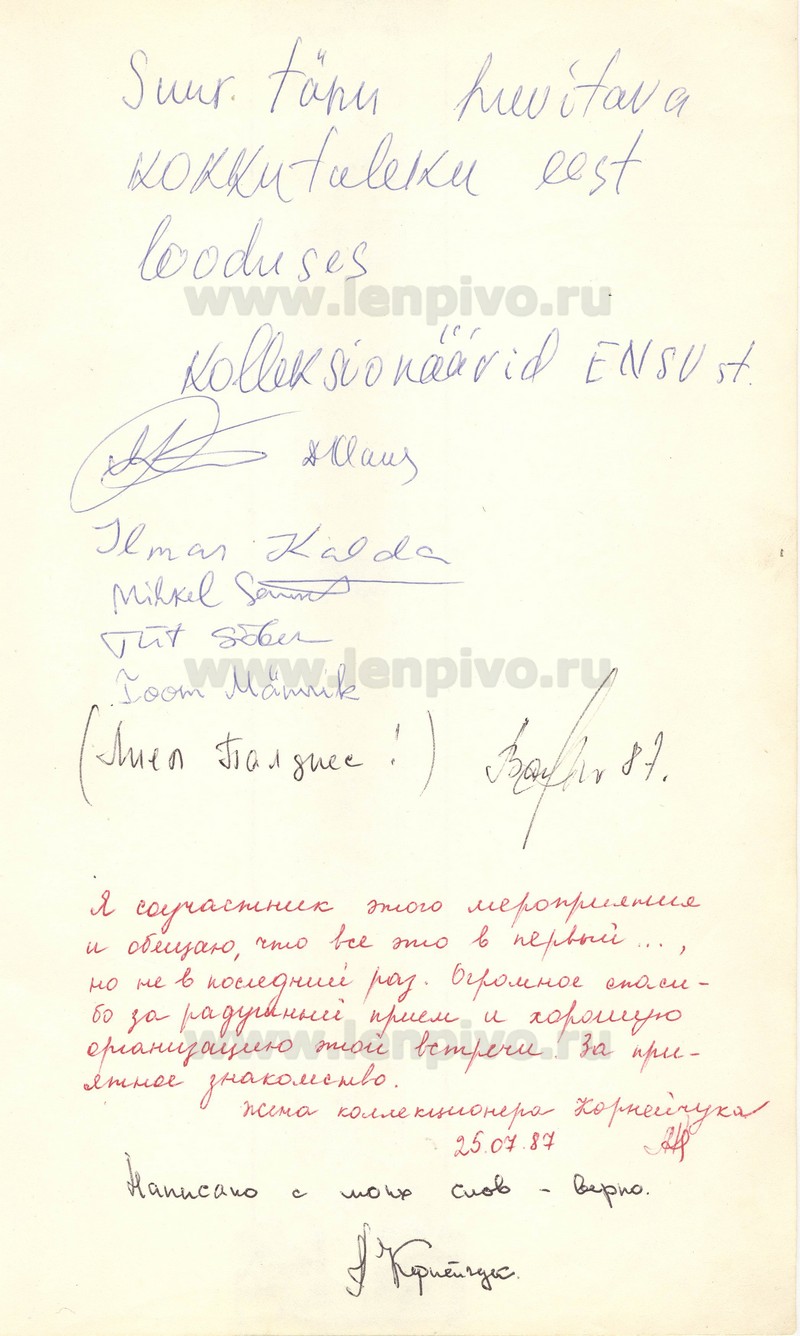 Suur. tänu huvitava
kokkutuleku eest
looduses
www.lenpivo.ru
kolleksionäärid ENSV st.
Ilmar Kalda
Mihkel
Tiit Sõber
www.lenpivo.ru
Toom Männik
(Лиел Палдиес!) 87.
Я соучастник этого мероприятия
и обещаю, что все это в первый...,
но не в последний раз. Огромное спаси-
бо за радушный прием и хорошую
www.lenpivo.ru
организацию этой встречи. За при-
ятное знакомство.
Жена коллекционера Корнейчука
25.07.87
Написано с моих слов - верно.
Корнейчук.